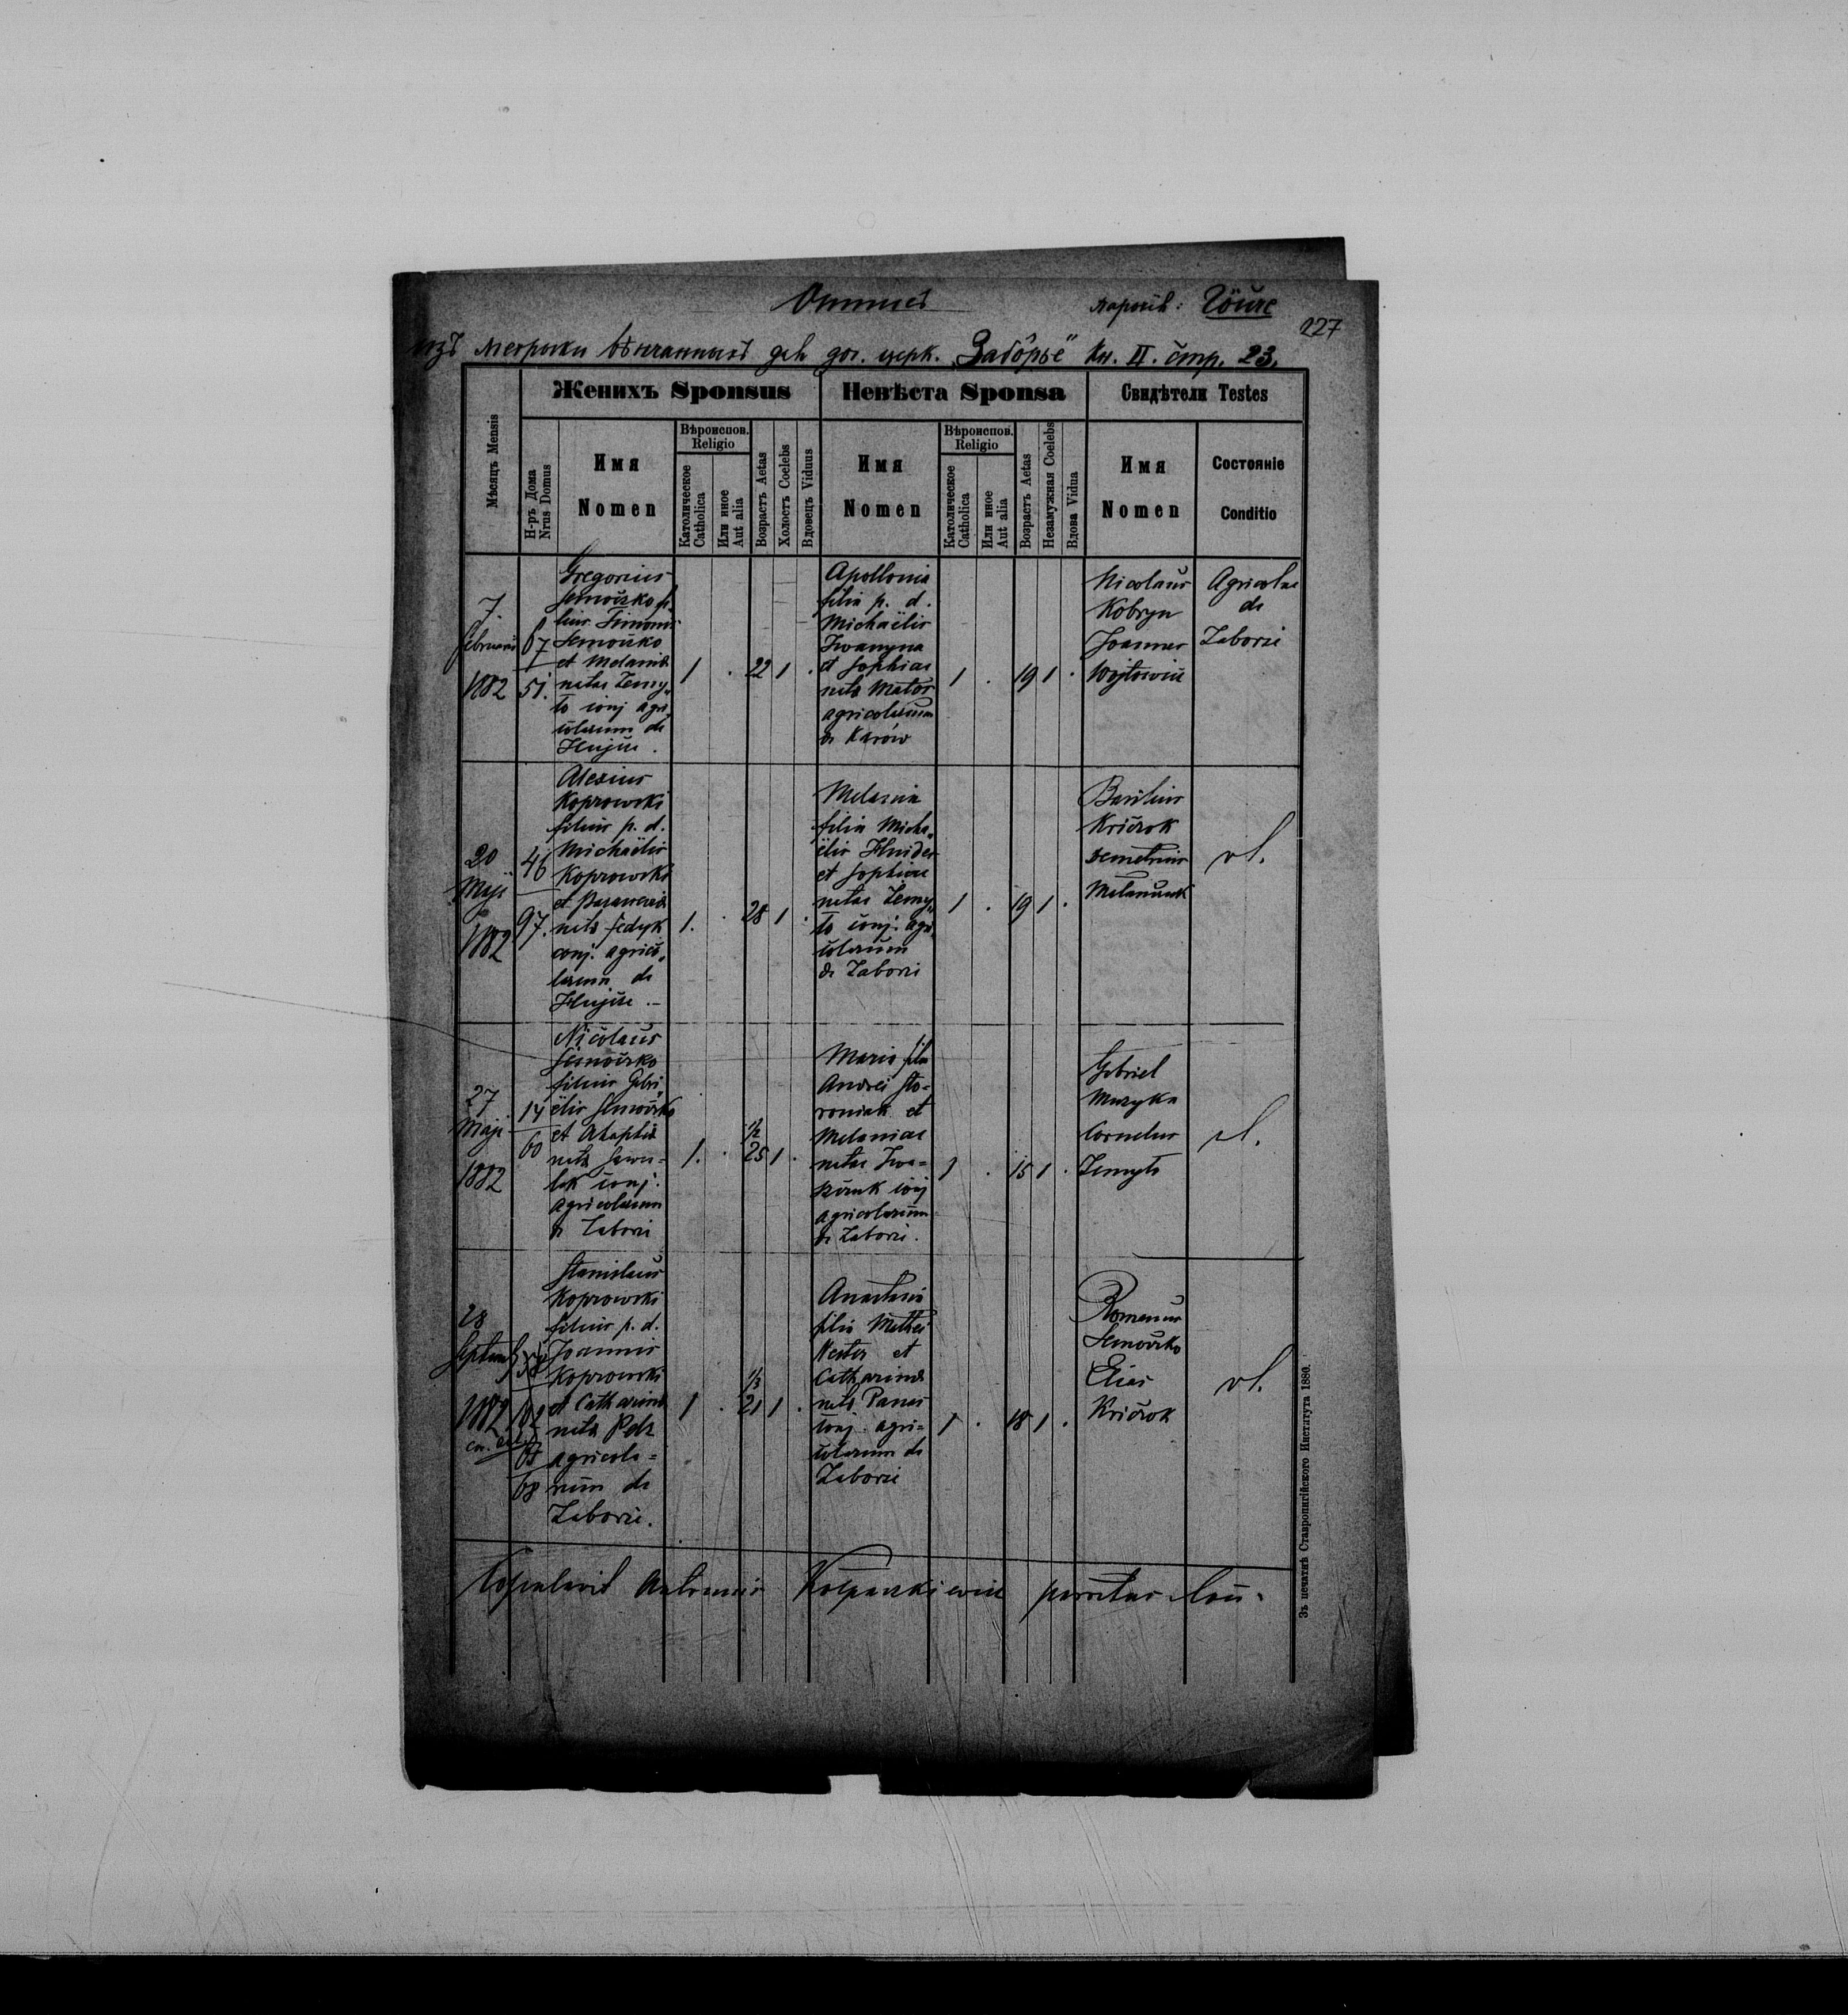 Отписъ парохія: Гойче
127
изъ метрыки вѣнчанныхъ для доч. церк. „Заборье" Кн. II. стр. 23.
Женихъ Sponsus Невѣста Sponsa Свидѣтели Testes
Мѣсяцъ Mensis
Н-ръ Дома
Nrus Domus
Имя
Nomen
Вѣроиспов.
Religio
Католическое
Catholica
Или иное
Aut alia
Возрастъ Aetas
Холостъ Coelebs
Вдовецъ Viduus
Имя
Nomen
Вѣроиспов.
Religio
Католическое
Catholica
Или иное
Aut alia
Возрастъ Aetas
Незамужная Coelebs
Вдова Vidua
Имя
Nomen
Состояніе
Conditio
7
Februarii
1882
67
51.
Gregorius
Semoczko fi-
lius Simonis
Semoczko
et Melaniae
natae Zemy-
to conj agri-
colarum de
Hujcze.
1 . 22 1 .
Apollonia
filia p. d.
Michaëlis
Iwanyna
et Sophiae
nata Mator
agricolarum
de Karów
1 . 19 1 .
Nicolaus
Kobryn
Joannes
Wojtowicz
Agricolae
de
Zaborze
20
Maji
1882
46
97.
Alexius
Koprowski
filius p. d.
Michaëlis
Koprowski
et Parasceviae
nata Fedyk
conj. agrico-
larum de
Hujcze.
1. . 28 1 .
Melania
filia Micha-
ëlis Hnider
et Sophiae
natae Zemy-
to conj. agri-
colarum
de Zaborze
1 . 19 1 .
Basilius
Kriczok
Demetrius
vl.
27
Maji
1882
14
60
Nicolaus
Semoczko
filius Gabri-
ëlis Semoczko
et Ahaphia
nata Sawu-
lak conj.
agricolarum
de Zaborze
1. . 25 1/2 1 .
Maria filia
Andrei Sto-
roniak et
Melaniae
natae Iwa-
szczuk conj
agricolarum
de Zaborze.
1 . 15 1 .
Gabriel
Muzyka
Cornelius
Zemyto
vl.
28
Septemb
1882
102
68
Stanislaus
Koprowski
filius p. d.
Joannis
Koprowski
et Catharina
nata Pelz
agricola-
rum de
Zaborze.
1 . 21 1/3 1 .
Anastasia
filia Mathei
Nester et
Catharinae
nata Panas
conj. agri-
colarum de
Zaborze
1 . 18 1 .
Romanus
Semoczko
Elias
Kriczok
vl.
Copulavit Antonius parochus loci.
Зъ печатнѣ Ставропигійского Института 1880.